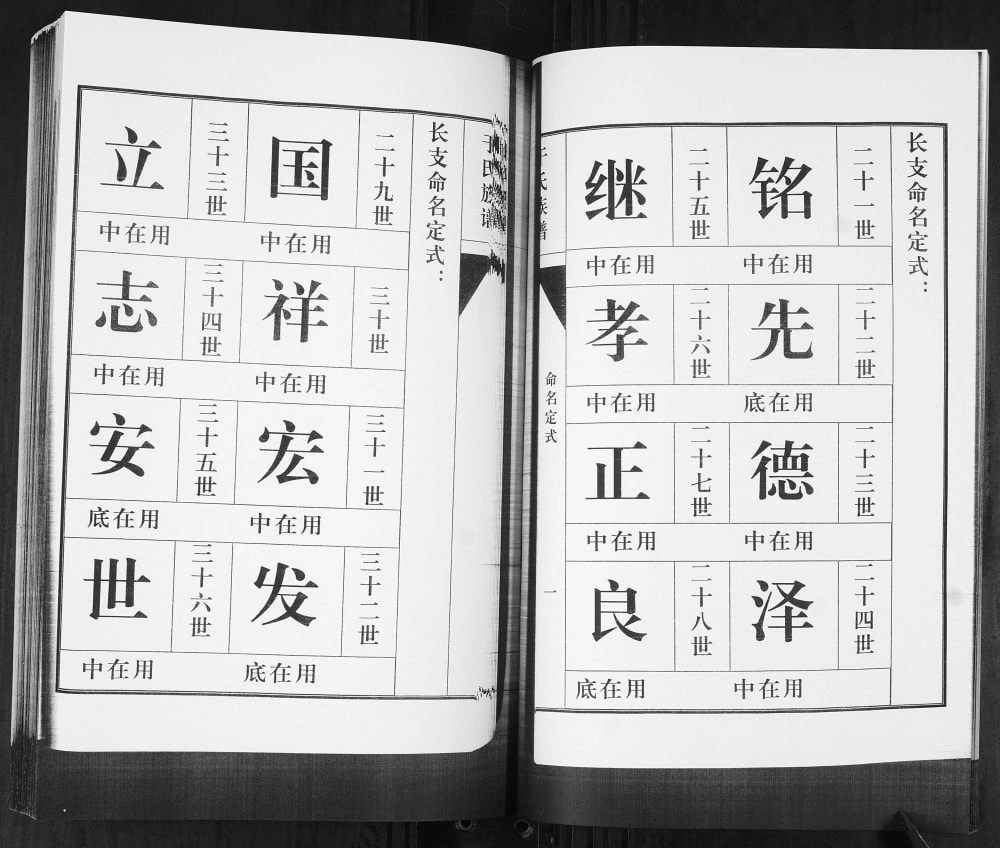 长支命名定式：
二十一世
铭
用在中
二十二世
先
用在底
二十三世
德
用在中
二十四世
泽
用在中
二十五世
继
用在中
二十六世
孝
用在中
二十七世
正
用在中
二十八世
良
用在底
氏族谱
命名定式
一
于氏族谱
长支命名定式：
二十九世
国
用在中
三十世
祥
用在中
三十一世
宏
用在中
三十二世
发
用在底
三十三世
立
用在中
三十四世
志
用在中
三十五世
安
用在底
三十六世
世
用在中